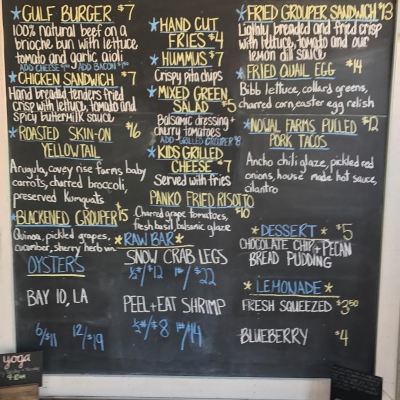 GULF BURGER $7
100% natural beef on a
brioche bun with lettuce
tomato and garlic aioli
ADD CHEESE ADD BACON
CHICKEN SANDWICH $7
Hand breaded tenders fried
crisp with lettuce, tomato and
spicy buttermilk sauce
ROASTED SKIN-ON $16
YELLOWTAIL
Arugula, covey rise farms baby
carrots, charred broccoli,
preserved kumquats
BLACKENED GROUPER $15
Quinoa, pickled grapes,
cucumber, sherry herb vin.
OYSTERS
BAY 10, LA
6/$11 12/$19
HAND CUT
FRIES $4
HUMMUS $7
Crispy pita chips
MIXED GREEN
SALAD $5
Balsamic dressing +
cherry tomatoes
ADD GRILLED GROUPER $8
KIDS GRILLED
CHEESE $7
Served with fries
PANKO FRIED RISOTTO
$10
Charred grape tomatoes,
fresh basil, balsamic glaze
RAW BAR
SNOW CRAB LEGS
1/2#/$12 1#/$22
PEEL+EAT SHRIMP
1/2#/$8 1#/$14
FRIED GROUPER SANDWICH $13
Lightly breaded and fried crisp
with lettuce, tomato and our
lemon dill sauce
FRIED QUAIL EGG $14
Bibb lettuce, collard greens,
charred corn, easter egg relish
NOWAL FARMS PULLED $12
PORK TACOS
Ancho chili glaze, pickled red
onions, house made hot sauce,
cilantro
DESSERT $5
CHOCOLATE CHIP + PECAN
BREAD PUDDING
LEMONADE
FRESH SQUEEZED $3.50
BLUEBERRY $4
yoga